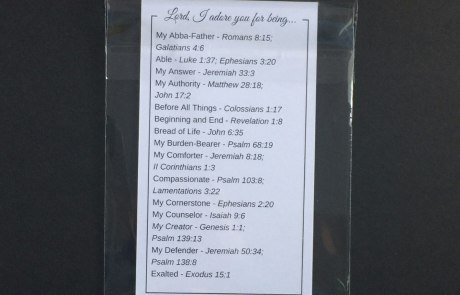 Lord, I adore you for being...
My Abba-Father - Romans 8:15;
Galatians 4:6
Able - Luke 1:37; Ephesians 3:20
My Answer - Jeremiah 33:3
My Authority - Matthew 28:18;
John 17:2
Before All Things - Colossians 1:17
Beginning and End - Revelation 1:8
Bread of Life - John 6:35
My Burden-Bearer - Psalm 68:19
My Comforter - Jeremiah 8:18;
II Corinthians 1:3
Compassionate - Psalm 103:8;
Lamentations 3:22
My Cornerstone - Ephesians 2:20
My Counselor - Isaiah 9:6
My Creator - Genesis 1:1;
Psalm 139:13
My Defender - Jeremiah 50:34;
Psalm 138:8
Exalted - Exodus 15:1